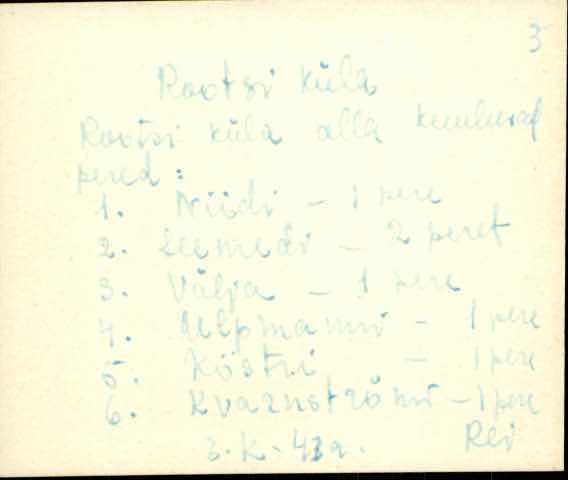 3
Rootsi küla
Rootsi küla alla kuuluvad
pered:
1. Niidi – 1 pere
2. Seemedi – 2 peret
3. Välja – 1 pere
4. – 1 pere
5. Köstri – 1 pere
6. Kvarnströmi – 1 pere
3. K. – 43a. Rei